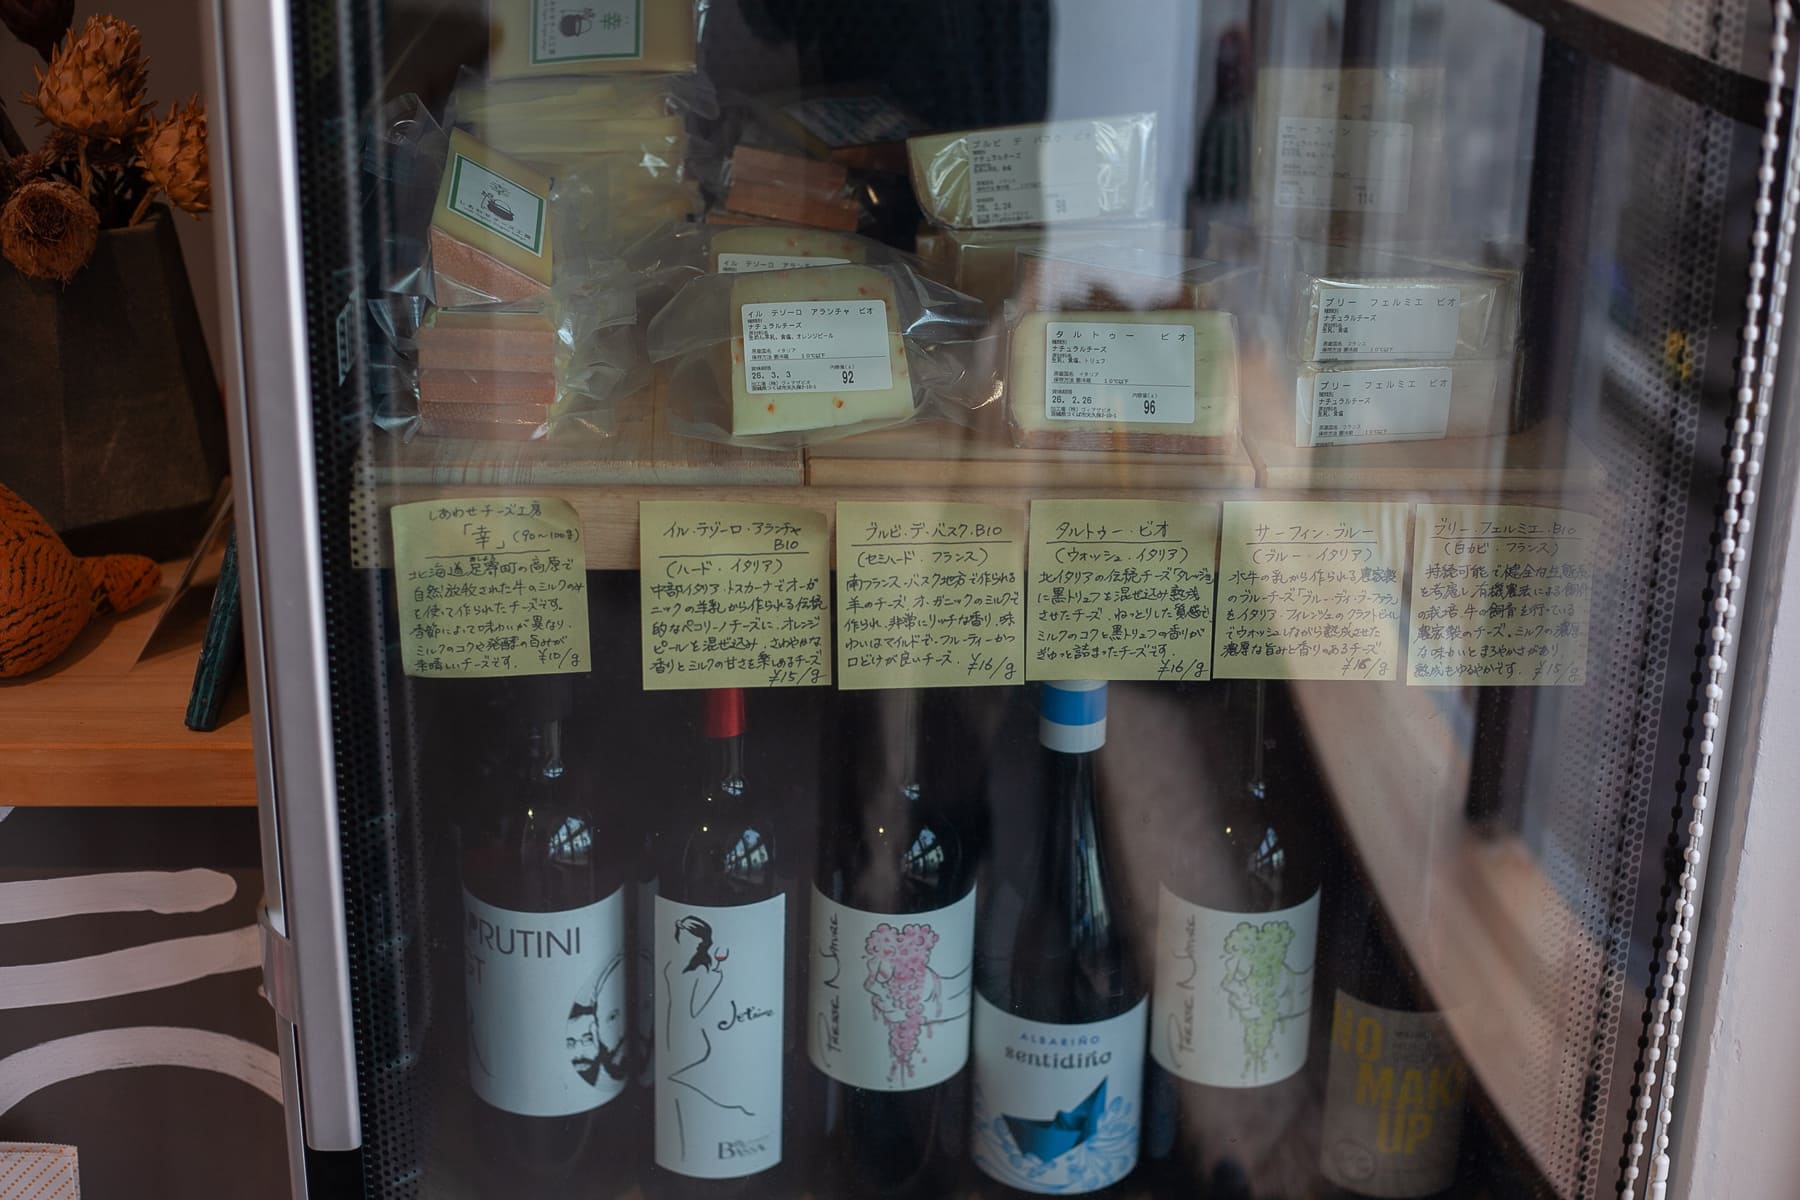 幸
しあわせチーズ工房
ブルビ デ バスク ビオ
ナチュラルチーズ
26. 2.24
98
サーフィン ブルー
114
イル テゾーロ アランチャ
イル テゾーロ アランチャ ビオ
種類別
ナチュラルチーズ
原材料名
生乳、食塩、オレンジピール
原産国名 イタリア
保存方法 要冷蔵 10℃以下
賞味期限
26. 3. 3
内容量(g)
92
タルトゥー ビオ
種類別
ナチュラルチーズ
原材料名
生乳、食塩、トリュフ
原産国名 イタリア
保存方法 要冷蔵 10℃以下
賞味期限
26. 2.26
内容量(g)
96
ブリー フェルミエ ビオ
種類別
ナチュラルチーズ
原材料名
生乳、食塩
原産国名 フランス
保存方法 要冷蔵 10℃以下
ブリー フェルミエ ビオ
種類別
ナチュラルチーズ
原材料名
生乳、食塩
原産国名 フランス
保存方法 要冷蔵 10℃以下
しあわせチーズ工房
「幸」(90〜100g)
北海道足寄町の高原で
自然放牧された牛のミルクのみ
を使って作られたチーズです。
季節によって味わいが異なり、
ミルクのコクと発酵の旨みが
素晴しいチーズです。 ¥10/g
イル・テゾーロ・アランチャ
BIO
(ハード・イタリア)
中部イタリア、トスカーナでオーガ
ニックの羊乳から作られる伝統
的なペコリーノチーズに、オレンジ
ピールを混ぜ込み、さわやかな
香りとミルクの甘さを楽しめるチーズ
¥15/g
ブルビ・デ・バスク・BIO
(セミハード・フランス)
南フランス・バスク地方で作られる
羊のチーズ。オーガニックのミルクで
作られ、非常にリッチな香り。味
わいはマイルドで・フルーティーかつ
口どけが良いチーズ。 ¥16/g
タルトゥー・ビオ
(ウォッシュ・イタリア)
北イタリアの伝統チーズ「タレッジョ」
に黒トリュフを混ぜ込み熟成
させたチーズ。ねっとりした質感で
ミルクのコクと黒トリュフの香りが
ぎゅっと詰まったチーズです。
¥16/g
サーフィン・ブルー
(ブルー・イタリア)
水牛の乳から作られる農家製
のブルーチーズ「ブルー・ディ・ブーファラ」
をイタリア・フィレンツェのクラフトビール
でウォッシュしながら熟成させた
濃厚な旨みと香りのあるチーズ
ブリー・フェルミエ・BIO
(白カビ・フランス)
持続可能で健全な生態系
を考慮し有機農法による飼料
の栽培、牛の飼育を行っている
農家製のチーズ。ミルクの濃厚
な味わいとまろやかさがあり、
熟成もゆるやかです。 ¥15/g
PRUTINI
Jetine
BASSAC
PARTAGE NATURE
ALBARIÑO
sentidiño
NO
MAKE
UP